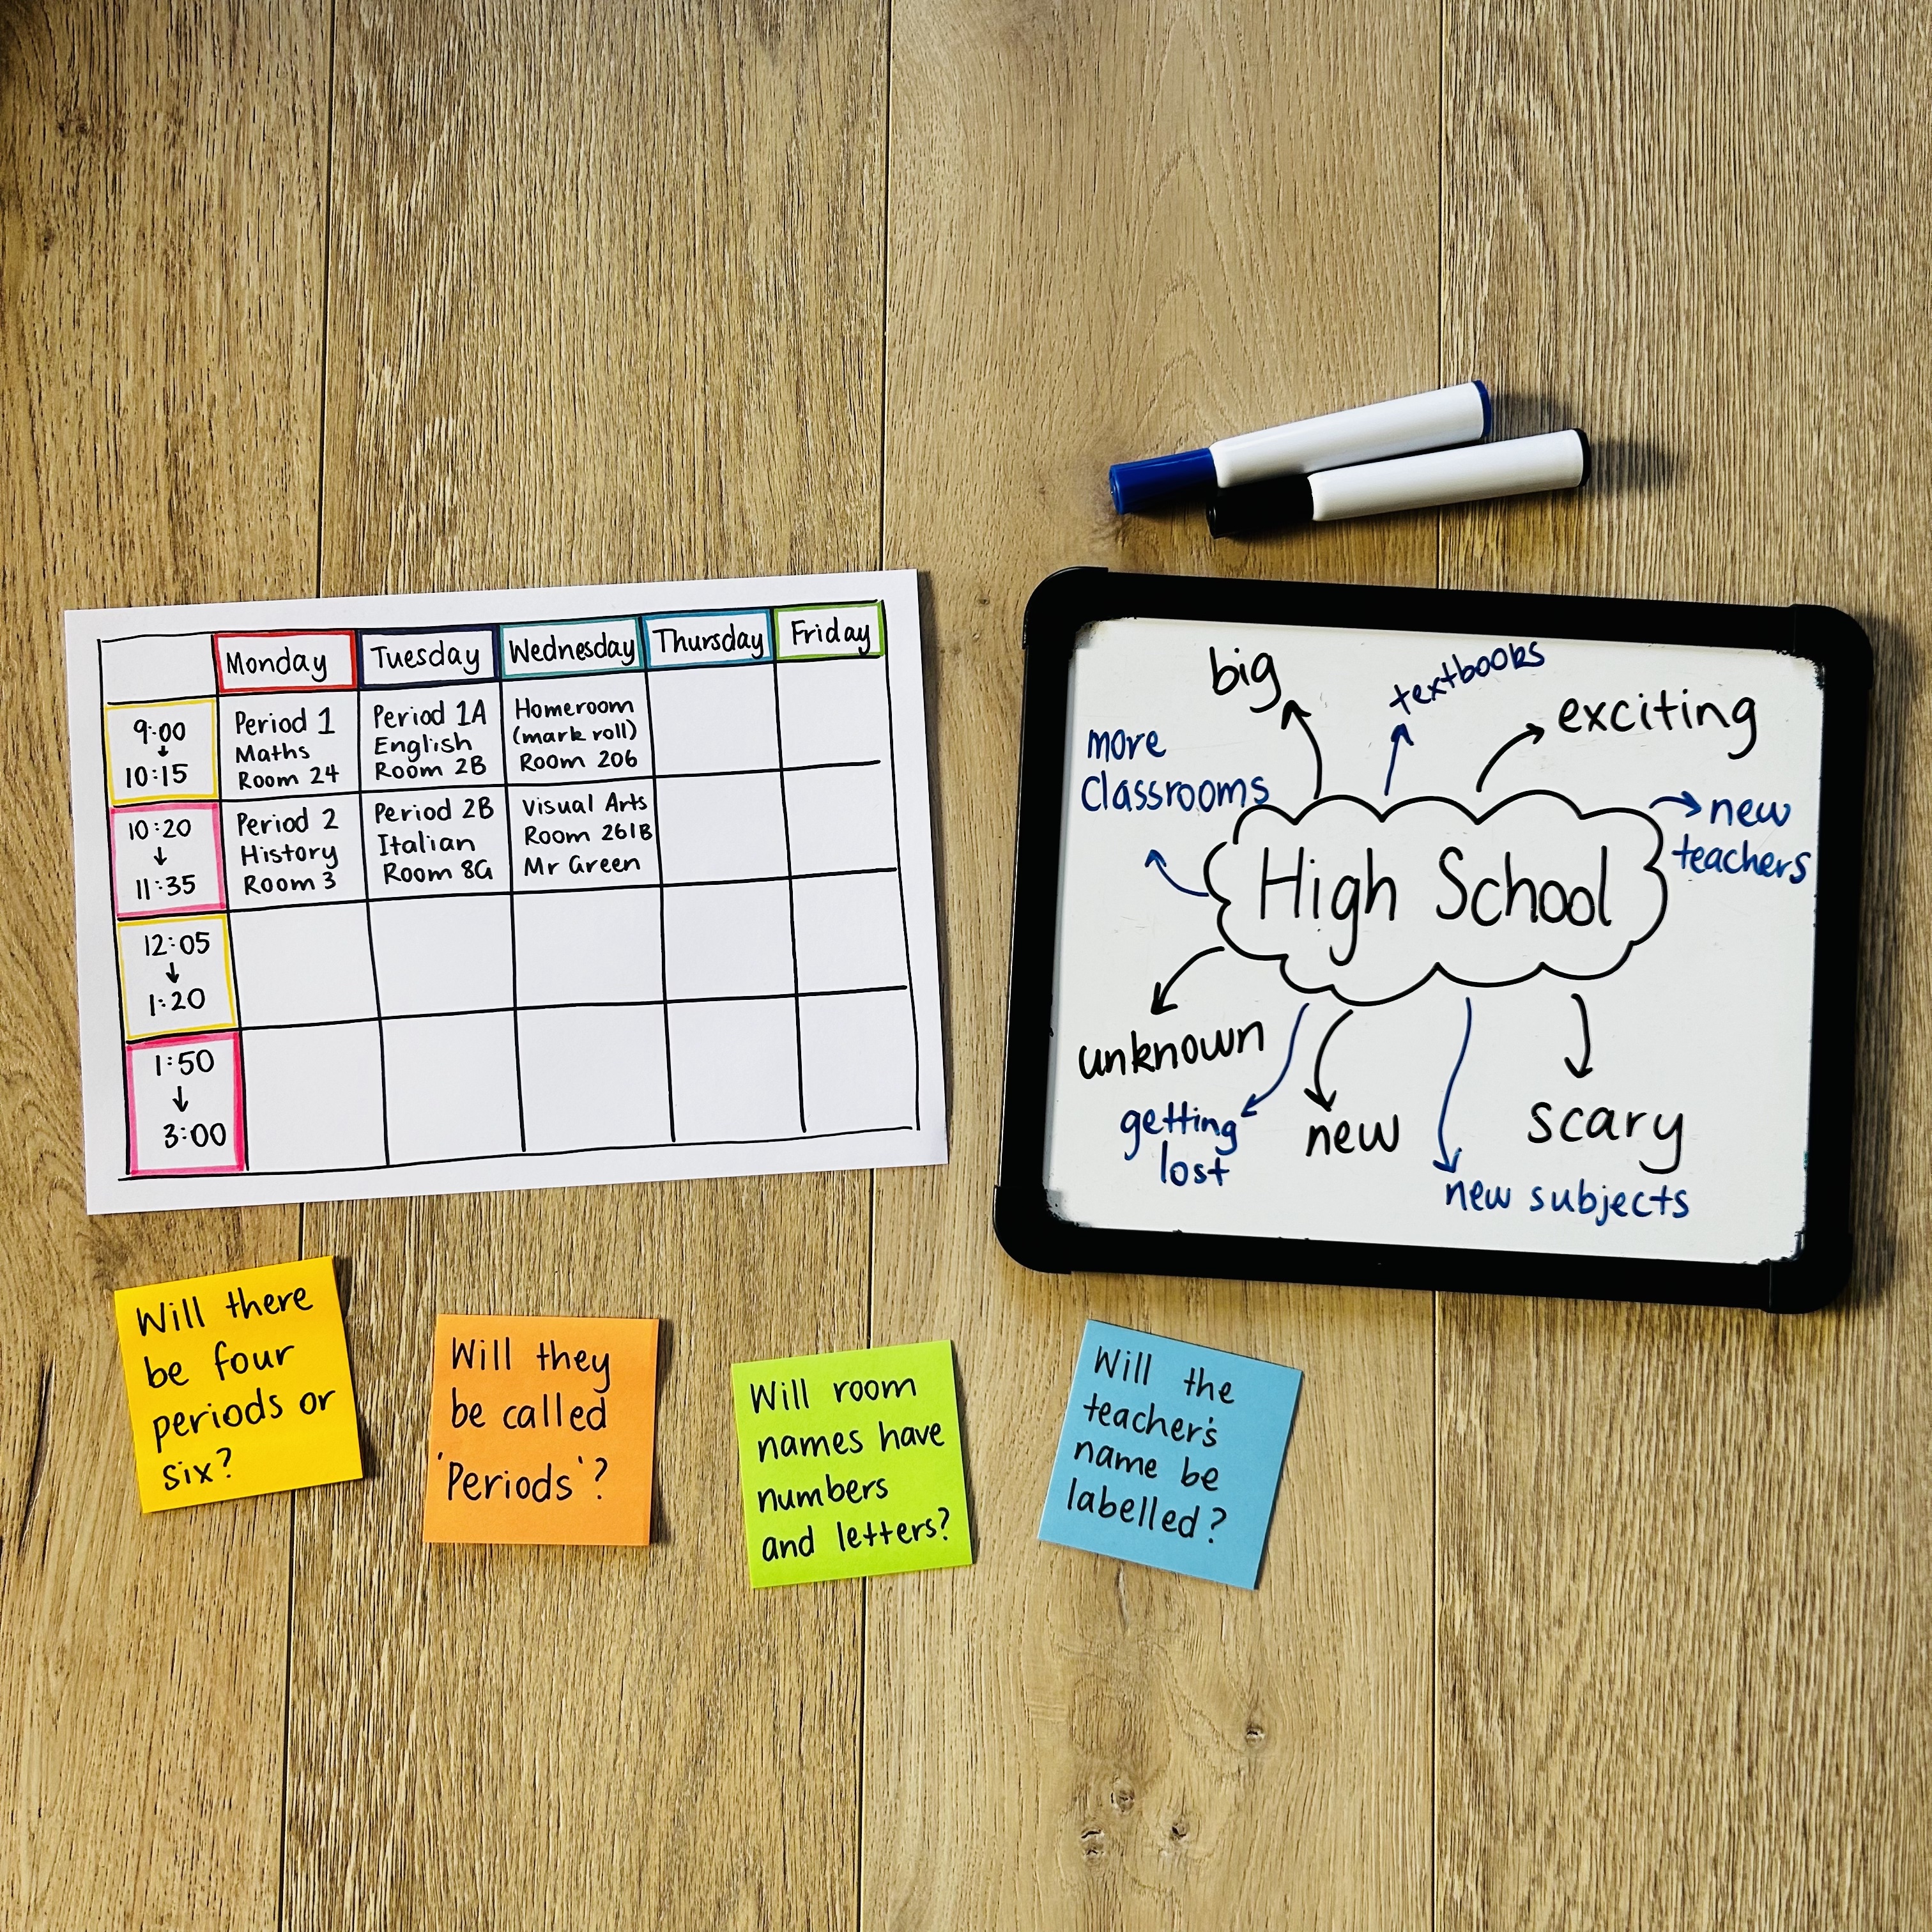 Monday Tuesday Wednesday Thursday Friday
9:00
↓
10:15
Period 1
Maths
Room 24
Period 1A
English
Room 2B
Homeroom
(mark roll)
Room 206
10:20
↓
11:35
Period 2
History
Room 3
Period 2B
Italian
Room 8G
Visual Arts
Room 261B
Mr Green
12:05
↓
1:20
1:50
↓
3:00
big
textbooks
exciting
more
classrooms
new
teachers
High School
unknown
getting
lost
new
new subjects
scary
Will there
be four
periods or
six?
Will they
be called
'Periods'?
Will room
names have
numbers
and letters?
Will the
teacher's
name be
labelled?